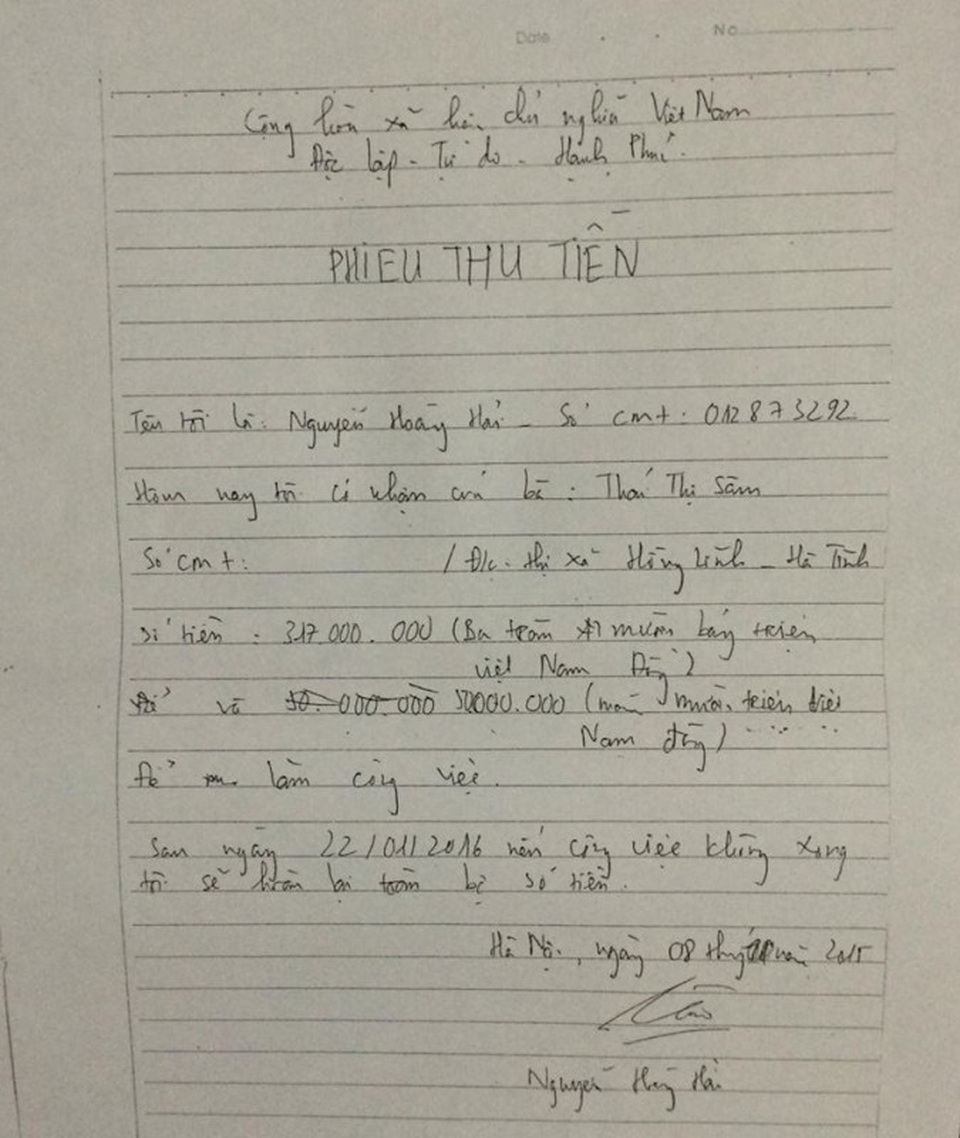 Date No
Cộng hòa xã hội chủ nghĩa Việt Nam
Độc lập - Tự do - Hạnh Phúc.
PHIẾU THU TIỀN
Tên tôi là: Nguyễn Hoàng Hải - Số cmt: 012873292.
Hôm nay tôi có nhận của bà: Thái Thị Sâm
Số cmt: / Đ/c. thị xã Hồng Lĩnh - Hà Tĩnh
Số tiền: 317.000.000 (Ba trăm mười bảy triệu
việt Nam Đồng)
và 50.000.000 50000.000 (năm mươi triệu việt
Nam đồng)
Để làm công việc.
Sau ngày 22/01/2016 nếu công việc không xong
tôi sẽ hoàn lại toàn bộ số tiền.
Hà Nội, ngày 08 tháng năm 2015
Nguyễn Hoàng Hải